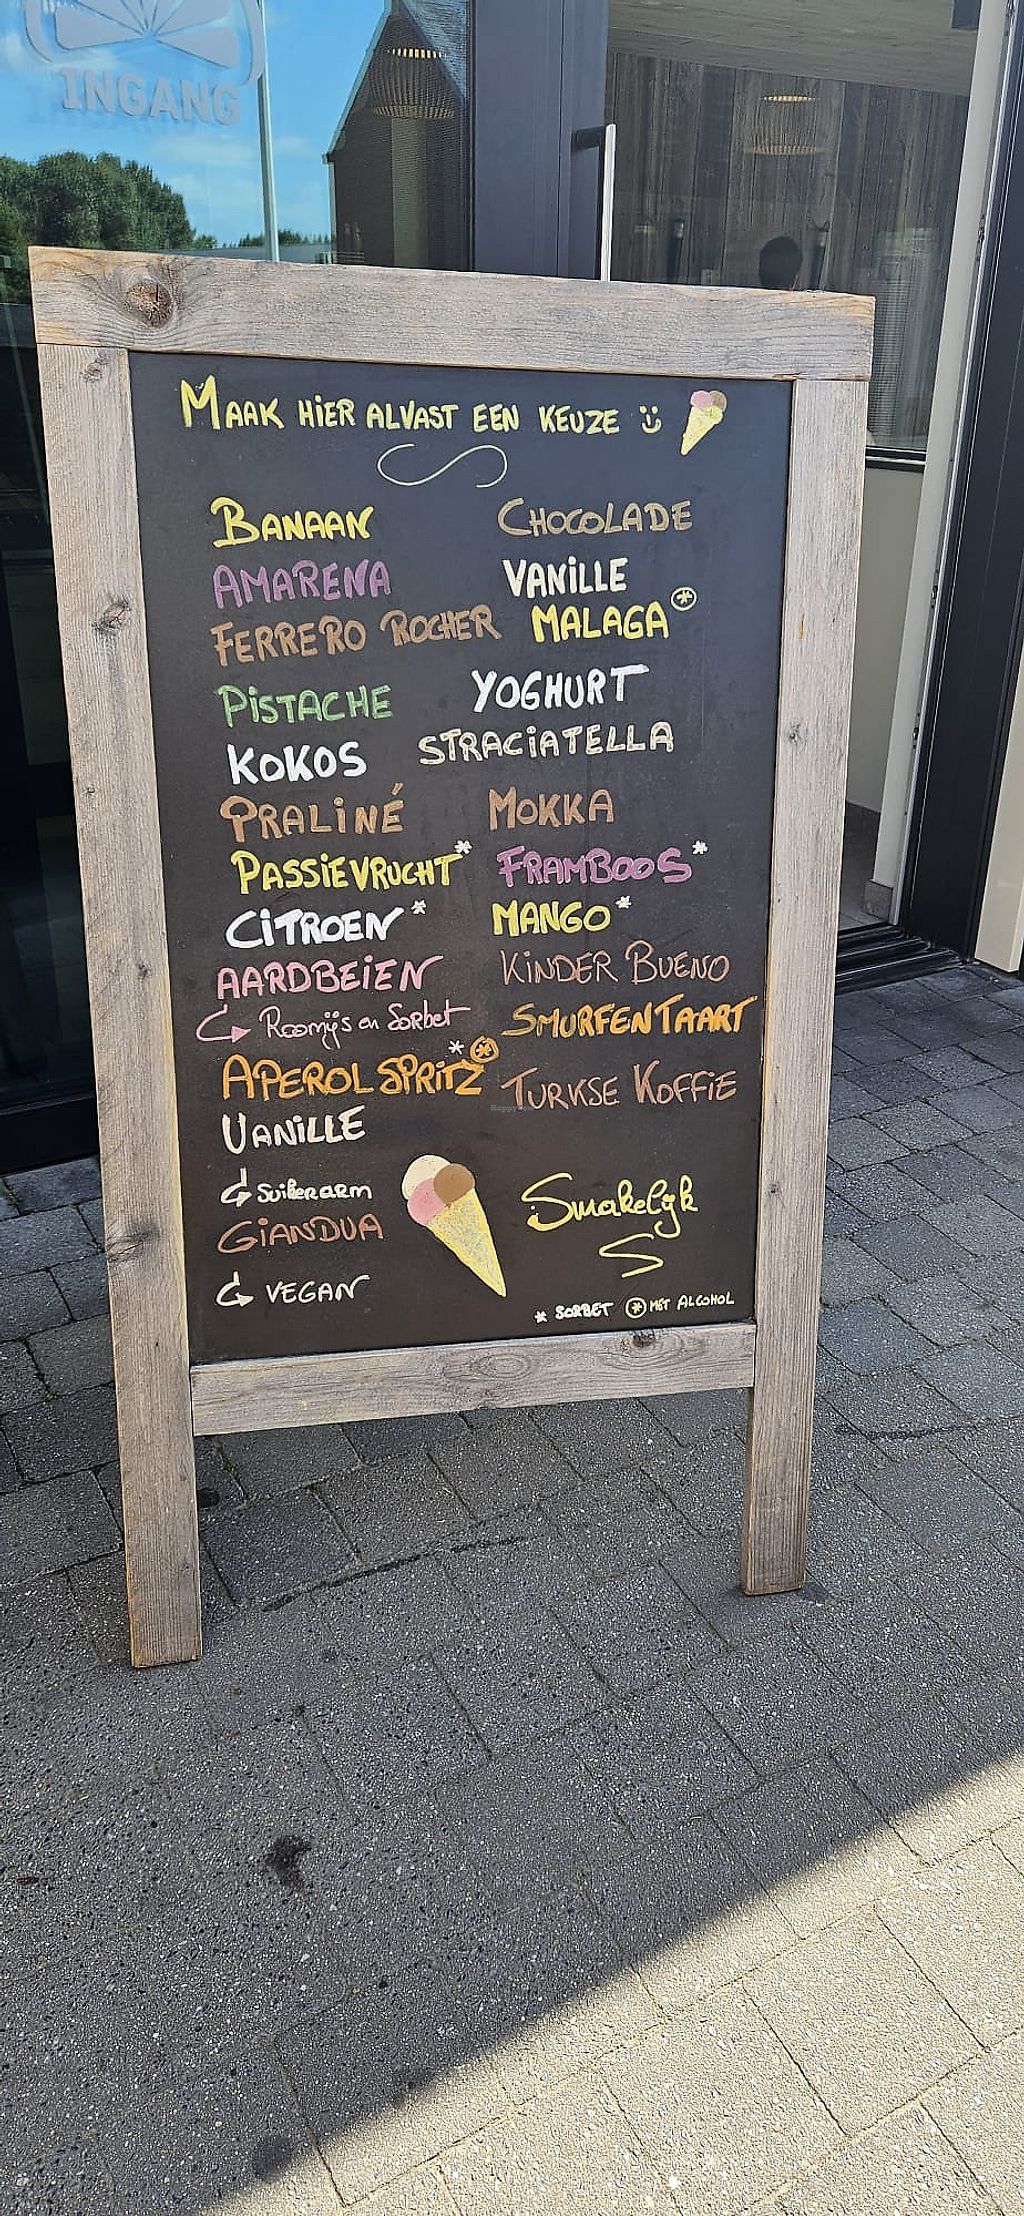 INGANG
MAAK HIER ALVAST EEN KEUZE
BANAAN CHOCOLADE
AMARENA VANILLE
FERRERO ROCHER MALAGA ⊛
PISTACHE YOGHURT
KOKOS STRACIATELLA
PRALINÉ MOKKA
PASSIEVRUCHT* FRAMBOOS*
CITROEN* MANGO*
AARDBEIEN KINDER BUENO
Roomijs en Sorbet SMURFENTAART
APEROL SPRITZ * ⊛ TURKSE KOFFIE
VANILLE
suikerarm Smakelijk
GIANDUA
VEGAN
* SORBET ⊛ MET ALCOHOL